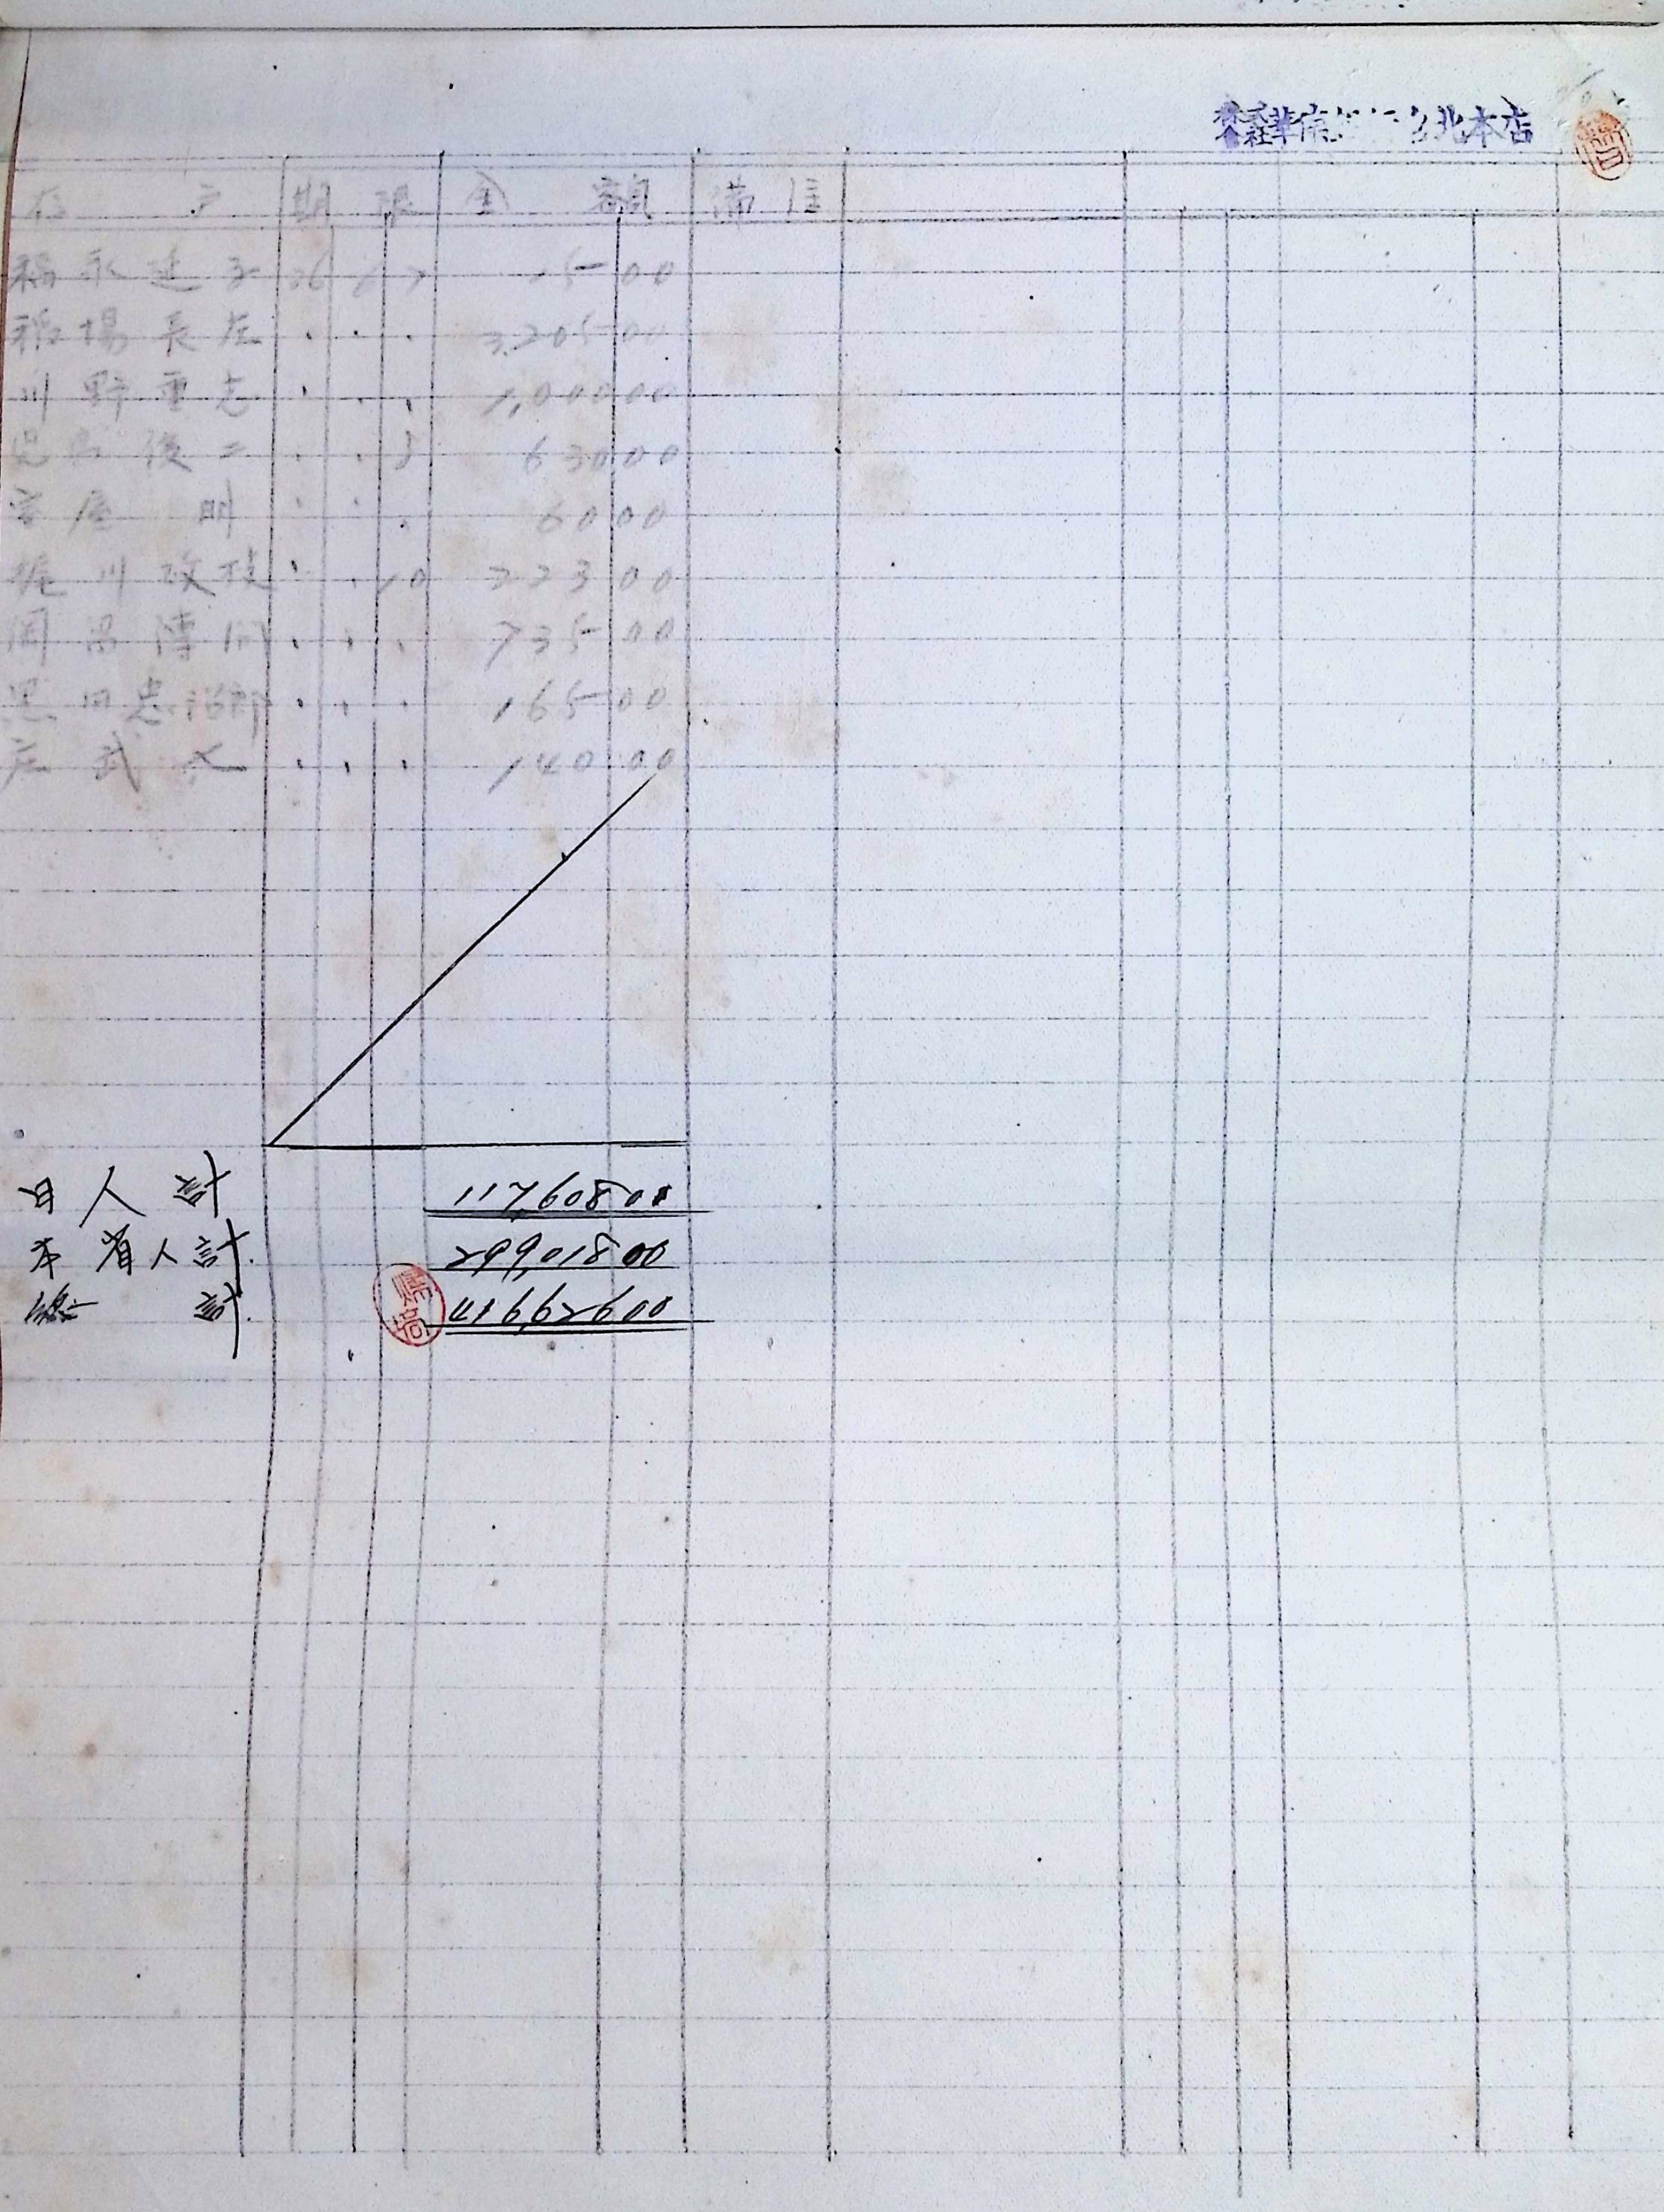 株式會社華南 台北本店
存戶 期限 金額 備註
福永延子 36 6 7 15 00
稻場長左 〃 〃 〃 3,205 00
川野重志 〃 〃 〃 1,000 00
俊二 〃 〃 8 630 00
屋明 〃 〃 〃 60 00
堀川政枝 〃 〃 10 223 00
〃 〃 〃 735 00
田忠治郎 〃 〃 〃 165 00
庄武久 〃 〃 〃 140 00
日人計 117,608 00
本省人計 299,018 00
總計 416,626 00